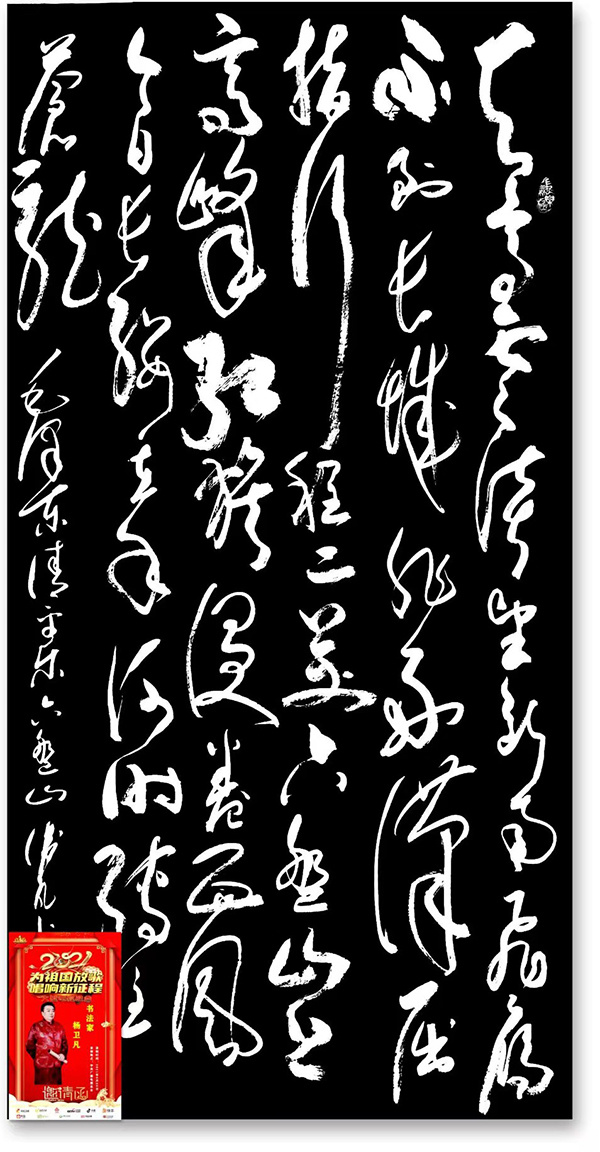 天高雲淡望断南飛雁
不到长城非好漢屈
指行程二万六盤山上
高峰红旗漫卷西風
今日长缨在手何时缚住
蒼龍 毛泽东清平乐六盤山 卫凡
2021
为祖国放歌
唱响新征程
书法家
杨卫凡
邀请函